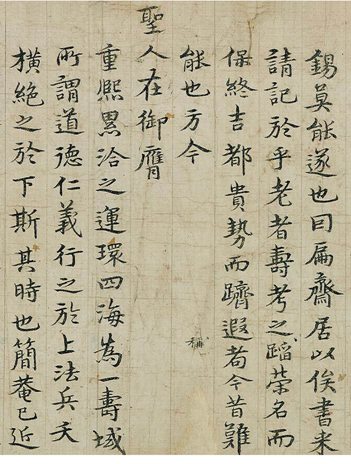 錫莫能遂也曰扁齋居以俟書来
請記於乎老者壽考之蹈榮名而
保終吉都貴勢而躋遐耇今昔難
能也方今
聖人在御膺
重熙累洽之運環四海為一壽域
所謂道德仁義行之於上法兵夭
橫絶之於下斯其時也簡菴已近